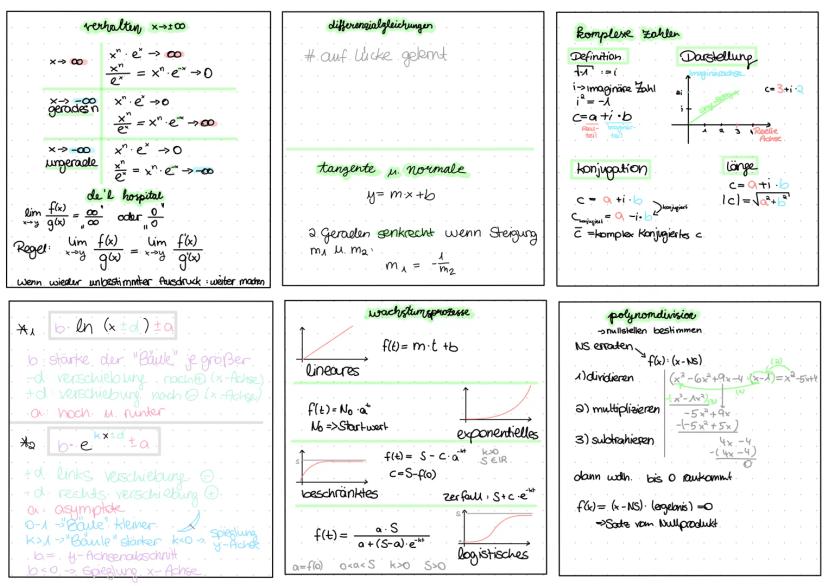 verhalten x→±∞
x→ ∞
xⁿ · eˣ → ∞
xⁿ/eˣ = xⁿ · e⁻ˣ → 0
x→ -∞
gerades n
xⁿ · eˣ → 0
xⁿ/eˣ = xⁿ · e⁻ˣ → ∞
x→ -∞
ungerade
xⁿ · eˣ → 0
xⁿ/eˣ = xⁿ · e⁻ˣ → -∞
de'l hospital
lim x→y f(x)/g(x) = "∞/∞" oder "0/0"
Regel: lim x→y f(x)/g(x) = lim x→y f'(x)/g'(x)
wenn wieder unbestimmter Ausdruck : weiter machen
differenzialgleichungen
# auf Lücke gelernt
tangente u. normale
y = m·x+b
2 Geraden senkrecht wenn Steigung
m₁ u. m₂:
m₁ = -1/m₂
komplexe zahlen
Definition
√-1 := i
i→ imaginäre Zahl
i² = -1
c = a + i · b
Real-teil
Imaginär-teil
Darstellung
Imaginärachse
2i
i
1 2 3 4
Reelle Achse
c = 3+i·2
konjugation
c = a +i·b
c konjugiert = a -i·b
konjugiert
c̄ = komplex konjugiertes c
Länge
c = a+i·b
|c| = √a²+b²
*1
b · ln (x ±d) ±a
b: stärke der "Bäule" je größer
-d verschiebung nach ⊕ (x-Achse)
+d verschiebung nach ⊖ (x-Achse)
a: hoch u. runter
*2
b · e^kx±d ±a
+d: links verschiebung ⊖
-d: rechts verschiebung ⊕
a: asymptote
0-1 → "Bäule" kleiner
k>1 → "Bäule" stärker
k<0 → spieglung y-Achse
b = y-Achsenabschnitt
b<0 → spieglung x-Achse
wachstumsprozesse
lineares
f(t) = m·t +b
f(t) = N₀ · aᵗ
N₀ => Startwert
exponentielles
S
beschränktes
f(t) = S - c · a⁻ᵏᵗ
k>0
S∈ℝ
c = S-f(0)
zerfall : S+c·e⁻ᵏᵗ
f(t) = a · S / a+(S-a)·e⁻ᵏᵗ
S
logistisches
a=f(0) 0<a<S k>0 S>0
polynomdivision
→nullstellen bestimmen
NS erraten
f(x) : (x-NS)
1) dividieren
(x³-6x²+9x-4 : (x-1) = x²-5x+4
2) multiplizieren
-(x³-1x²)
-5x²+9x
-(-5x²+5x)
3) subtrahieren
4x -4
-(4x -4)
0
dann wdh. bis 0 rauskommt
f(x) = (x-NS) · (ergebnis) = 0
=> Satz vom Nullprodukt